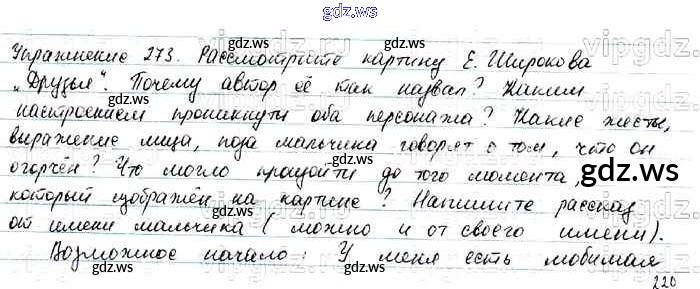 gdz.ws
Упражнение 273. Рассмотрите картину Е. Широкова
„Друзья“. Почему автор её так назвал? Каким
настроением проникнуты оба персонажа? Какие жесты,
выражение лица, поза мальчика говорят о том, что он
огорчён? Что могло произойти до того момента,
который изображён на картине? Напишите рассказ
от имени мальчика (можно и от своего имени).
Возможное начало: У меня есть любимая
220